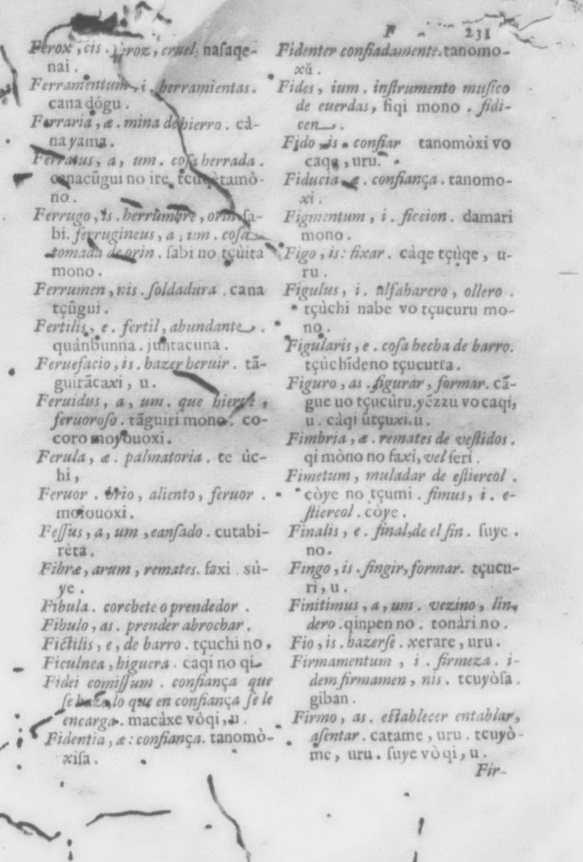 F 231
Ferox, cis. feroz, cruel. nasaqe-
nai.
Ferramentum, i. herramientas.
cana dôgu.
Ferraria, æ. mina de hierro. cà-
na yama.
Ferratus, a, um. cosa herrada.
canacũgui no ire,
no.
Ferrugo, is. herrumbre, orin sa-
bi. ferrugineus, a, um. cosa
tomada de orin. sabi no tçùita
mono.
Ferrumen, nis. soldadura. cana
tçũgui.
Fertilis, e. fertil, abundante.
quánbunna. juntacuna.
Feruefacio, is. hazer heruir. tã-
guirãcaxi, u.
Feruidus, a, um. que hierve,
feruoroso. tãguiri mono. co-
coro moyouoxi.
Ferula, æ. palmatoria. te ùc-
hi,
Feruor. brio, aliento, feruor.
motouoxi.
Fessus, a, um, cansado. cutabi-
rèta.
Fibræ, arum, remates. saxi sù-
ye.
Fibula. corchete o prendedor.
Fibulo, as. prender abrochar.
Fictilis, e, de barro. tçuchi no,
Ficulnea, higuera. caqi no qi.
Fidei comissum. confiança que
se haze, lo que en confiança se le
encarga. macàxe vòqi, u.
Fidentia, æ: confiança. tanomò-
xisa.
Fidenter confiadamente. tanomo-
xũ.
Fides, ium. instrumento musico
de cuerdas, fiqi mono. fidi-
cen.
Fido is. confiar tanomòxi vo
caqe, uru.
Fiducia æ. confiança. tanomo-
xi.
Figmentum, i. ficcion. damari
mono.
Figo, is: fixar. càqe tçùqe, u-
ru.
Figulus, i. alfaharero, ollero.
tçùchi nabe vo tçucuru mo-
no.
Figularis, e. cosa hecha de barro.
tçùchĩdeno tçucutta.
Figuro, as. figurar, formar. cã-
gue uo tçucùru, yẽzzu vo caqi,
u. càqi ùtçuxi. u.
Fimbria, æ. remates de vestidos.
qi mòno no saxi, vel feri.
Fimetum, muladar de estiercol.
còye no tçumi. fimus, i. e-
stiercol. còye.
Finalis, e. final, de el fin. suye.
no.
Fingo, is. fingir, formar. tçucu-
ri, u.
Finitimus, a, um. vezino, lin,
dero. qinpen no. tonàri no.
Fio, is. hazerse. xerare, uru.
Firmamentum, i. firmeza. i-
dem firmamen, nis. tcuyòsa.
giban.
Firmo, as. establecer entablar,
asentar. catame, uru. tcuyò-
me, uru. suye vò qi, u.
Fir-